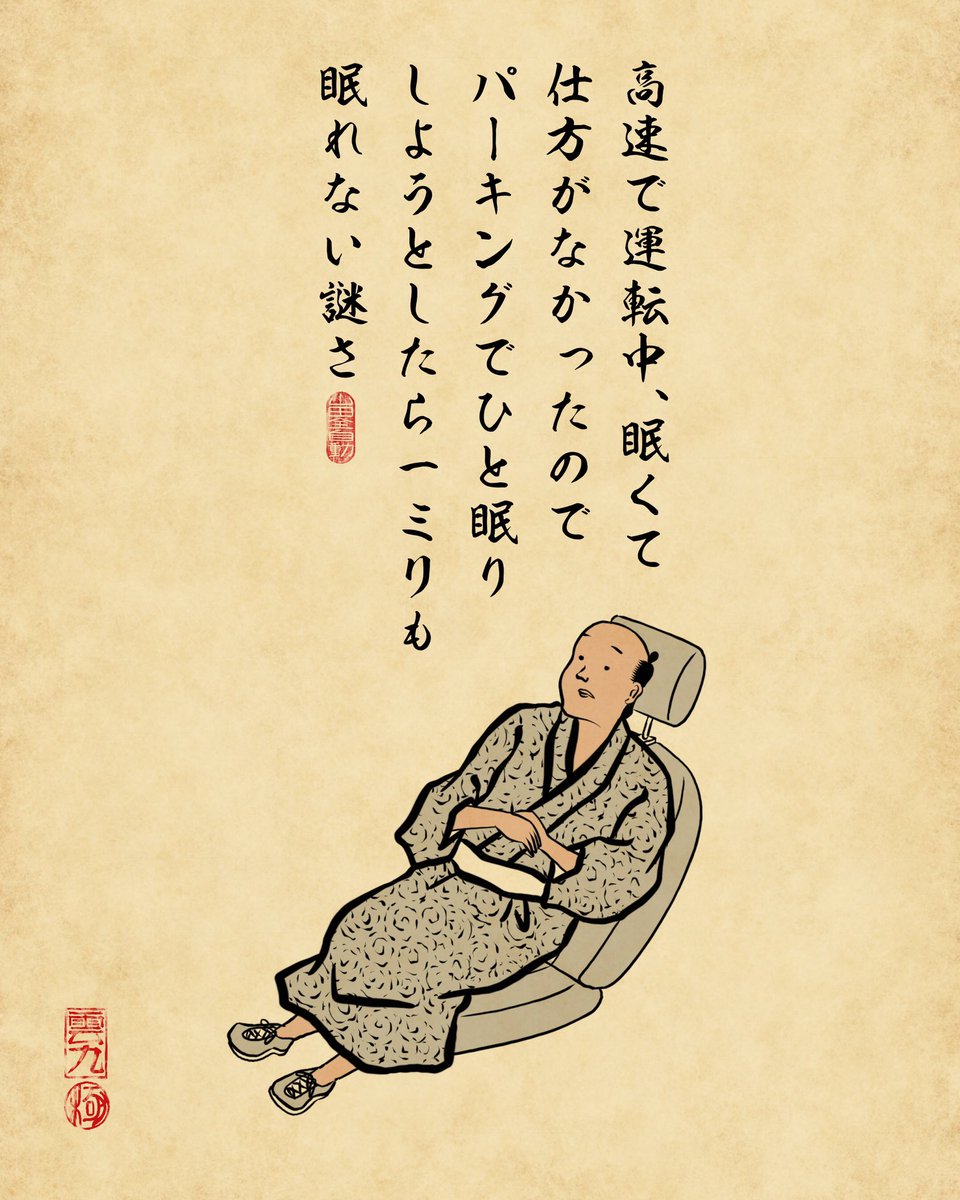 高速で運転中、眠くて
仕方がなかったので
パーキングでひと眠り
しようとしたら一ミリも
眠れない謎さ